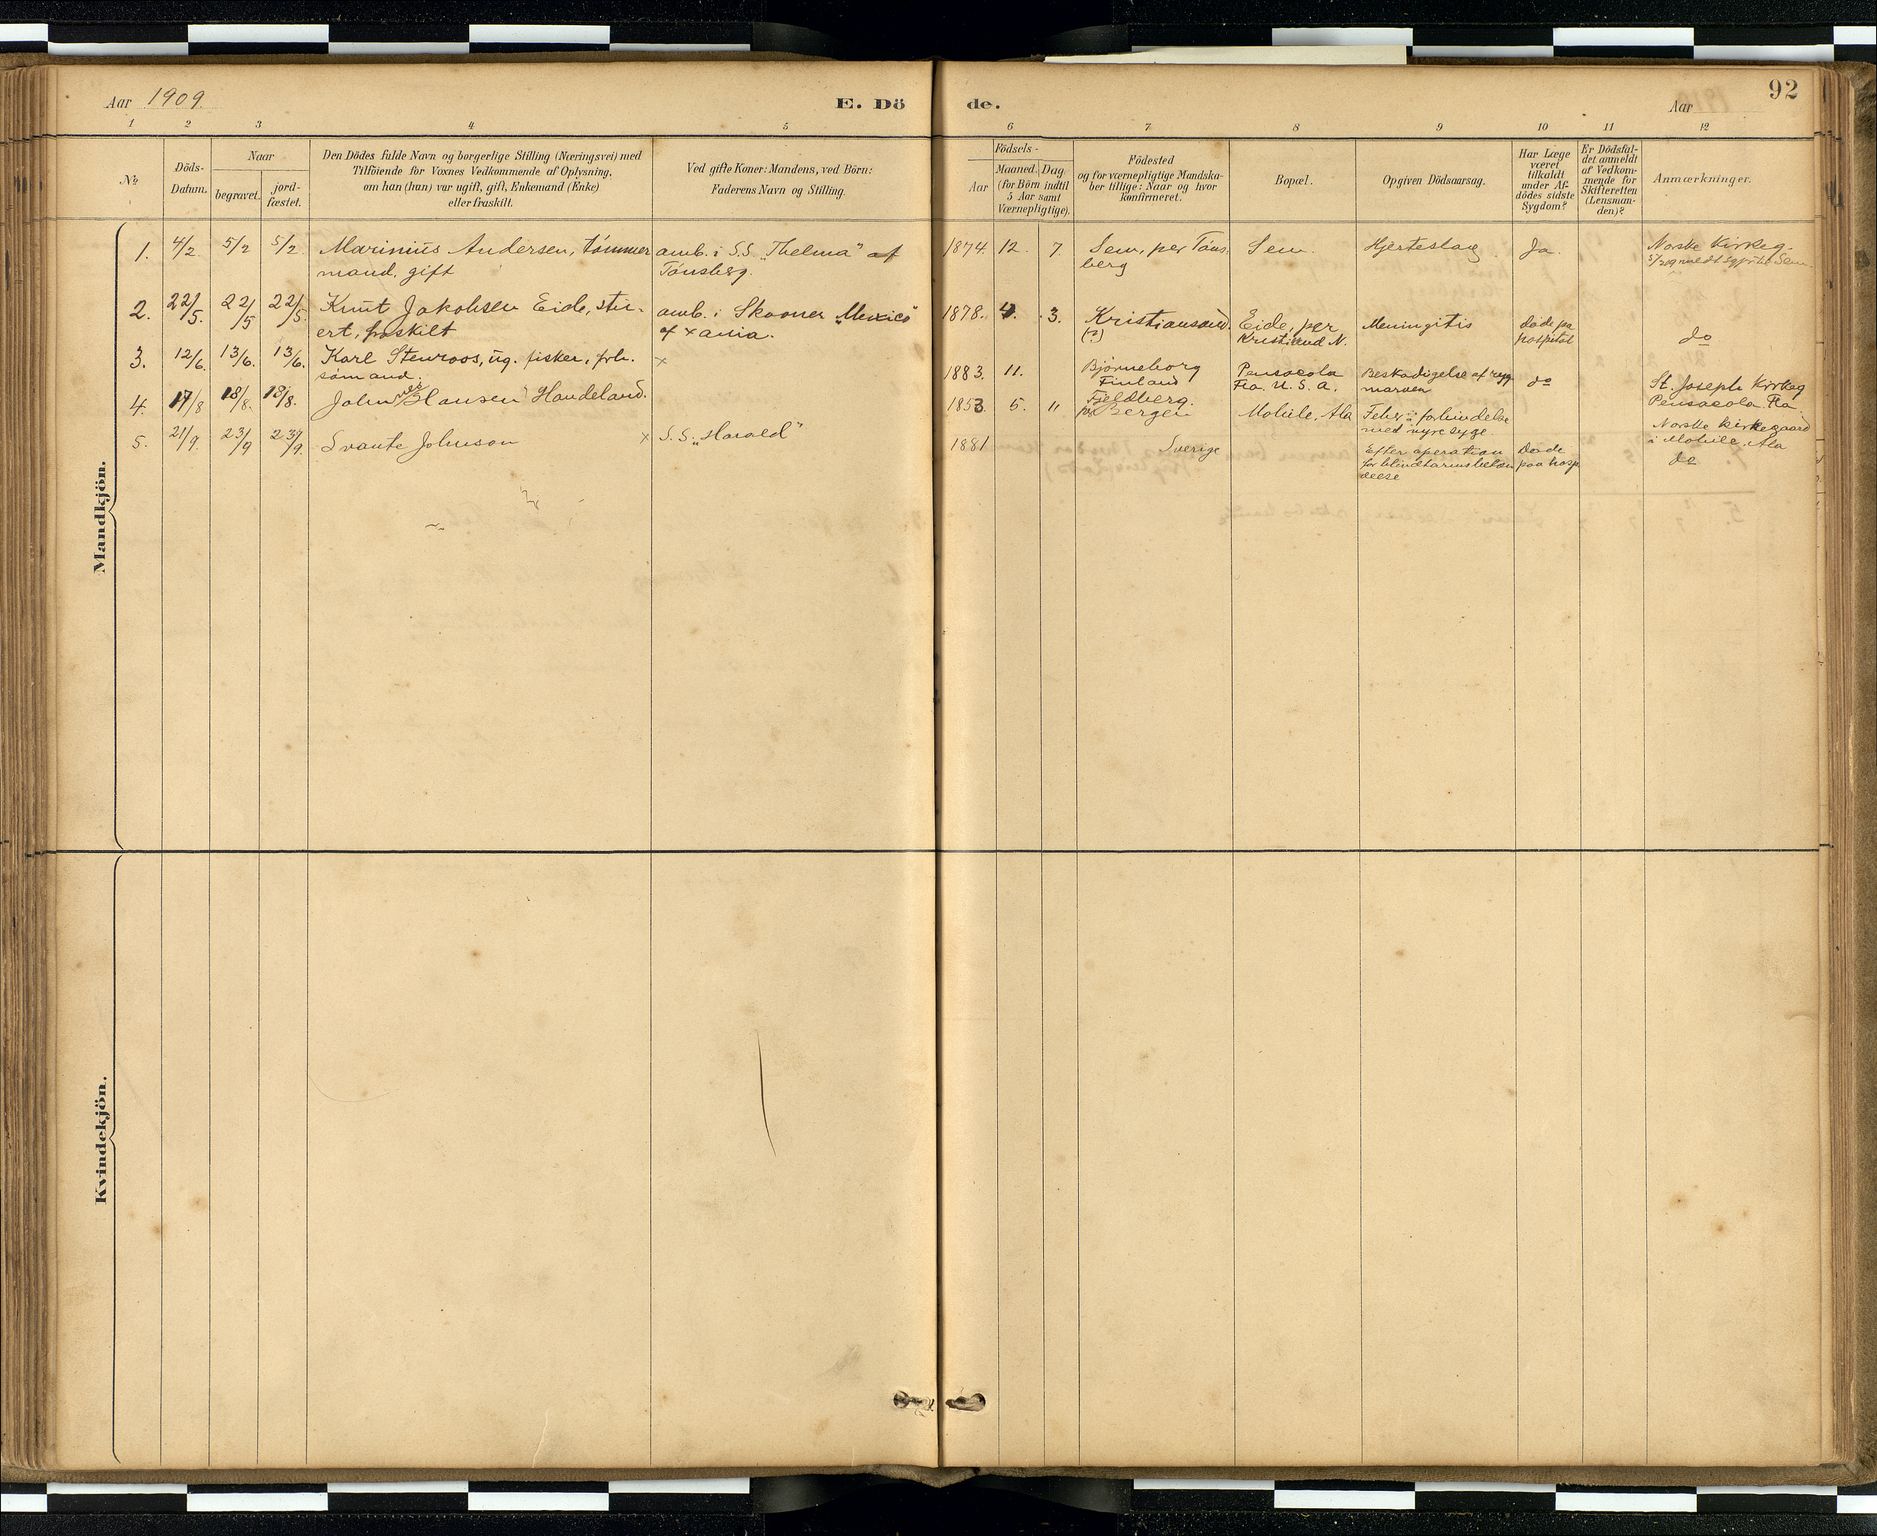 Aar 1909.
E. Dö
de.
Aar
92
1 2 3 4 5
6 7 8 9 10 11 12
No
Döds-
Datum.
Naar
begravet.
jord-
fæstet.
Den Dödes fulde Navn og borgerlige Stilling (Næringsvei) med
Tilföiende for Voxnes Vedkommende af Oplysning,
om han (hun) var ugift, gift, Enkemand (Enke)
eller fraskilt.
Ved gifte Koner: Mandens, ved Börn:
Faderens Navn og Stilling.
Födsels-
Aar
Maaned. Dag.
(for Börn indtil
5 Aar samt
Værnepligtige).
Födested
og for værnepligtige Mandska-
ber tillige: Naar og hvor
konfirmeret.
Bopæl.
Opgiven Dödsaarsag.
Har Læge
været
tilkaldt
under Af-
dödes sidste
Sygdom?
Er Dödsfal-
det anmeldt
af Vedkom-
mende for
Skifteretten
(Lensman-
den)?
Anmærkninger.
Mandkjön.
1. 4/2 5/2 5/2 Marinius Andersen, tömmer amb. i S.S. „Thelma" af 1874. 12. 7. Sem, per Töns- Sem Hjerteslag Ja. Norske Kirkeg.
mand, gift Tönsberg. berg
2. 22/5. 22/5 22/5. Knut Jakobsen Eide, stu- amb. i Skooner „Mexico" 1878. 4. 3. Kristiansund. Eide, per Meningitis döde pa
ert, fraskilt af Xania. (?) Kristiund N. hospital do
3. 12/6. 13/6. 13/6. Karl Stenroos, ug. fisker, frh. × 1883. 11. Bjørneborg Pensacola Beskadigelse af ryg- do St. Joseph Kirkeg
sömand. Finland Fla. U.S.A. marven Pensacola Fla.
4. 17/8 18/8. 18/8. John Hansen Handeland. 1853. 5. 11 Fjeldberg. Mobile, Ala Feber i forbindelse Norske Kirkegaard
per Bergen med nyre syge i Mobile, Ala
5. 21/9. 23/9 23/9. Svante Johnson × S.S. „Harald" 1881 Sverige Efter operation Døde do
for blindtarmsbetæn paa hosp.
delse
Kvindekjön.